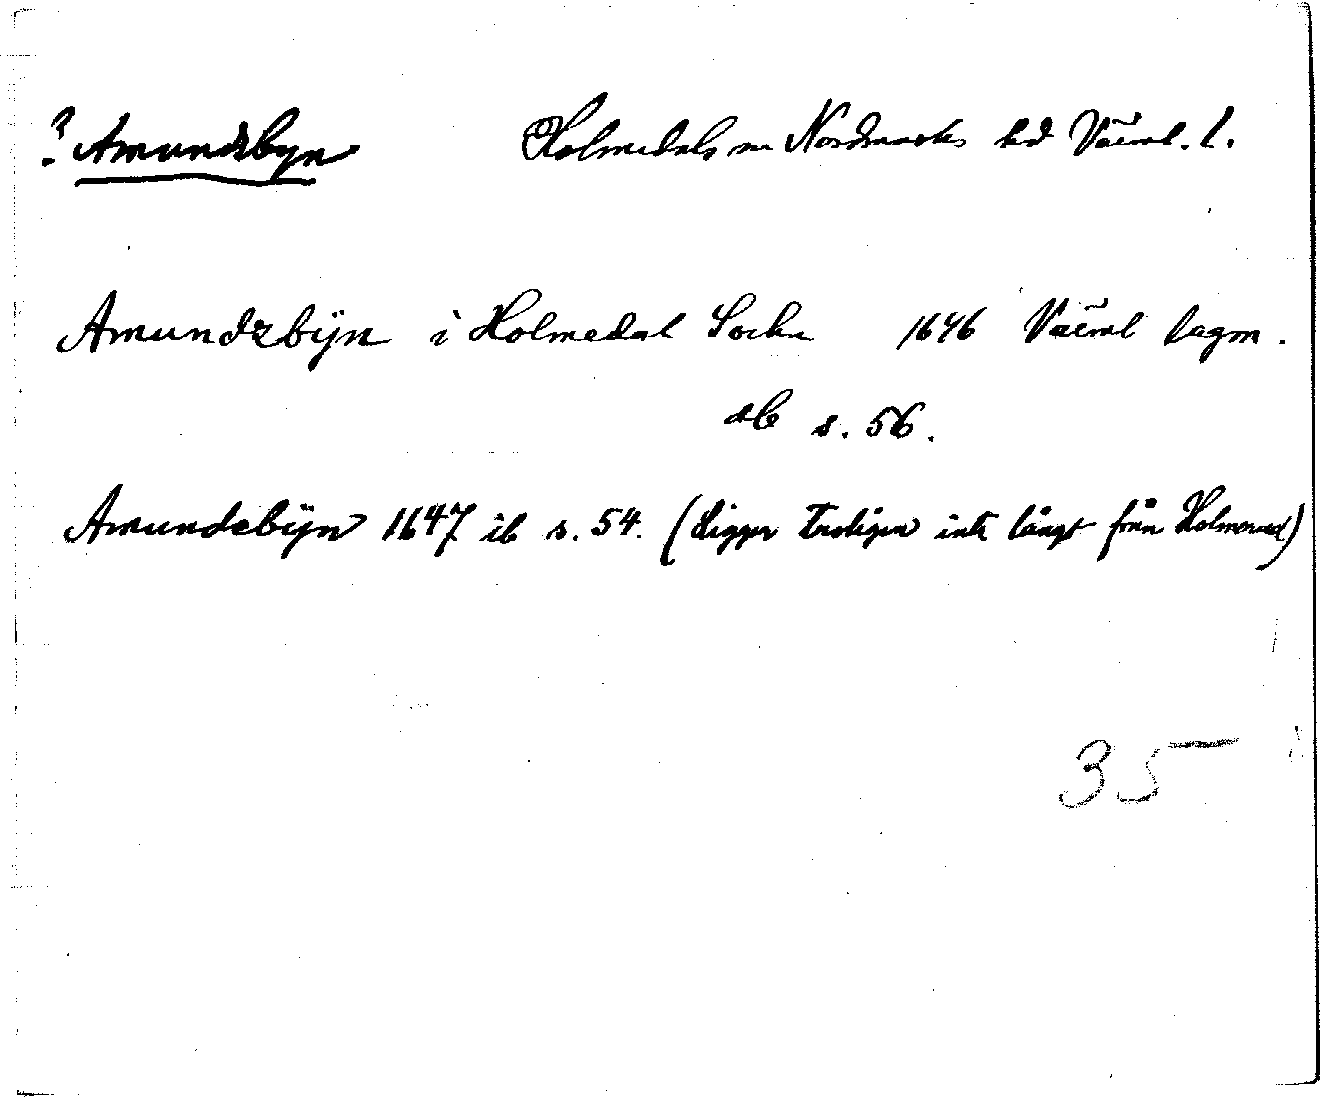 ? Amundsbyn Holmedals sn Nordmarks hd Värml. l.
Amundzbÿn i Holmedal Sockn 1646 Värml lagm.
db s. 56.
Amundebÿn 1647 ib s. 54. (Ligger troligen inte långt från Holmerud)
35